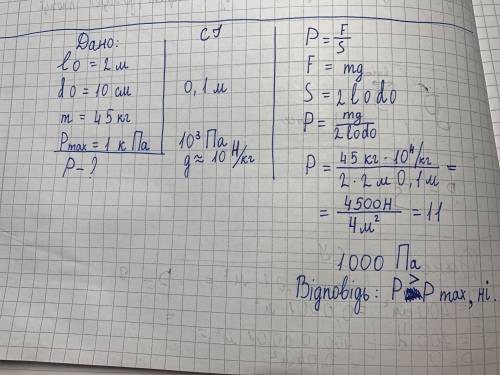 Дано:
l0 = 2 м
d0 = 10 см
m = 45 кг
Pmax = 1 к Па
P - ?
СІ
0,1 м
10³ Па
g ≈ 10 Н/кг
P = F/S
F = mg
S = 2l0d0
P = mg/2l0d0
P = 45 кг · 10 Н/кг / 2 · 2 м 0,1 м =
= 4500Н / 4 м² = 11
1000 Па
Відповідь: P > P max, ні.